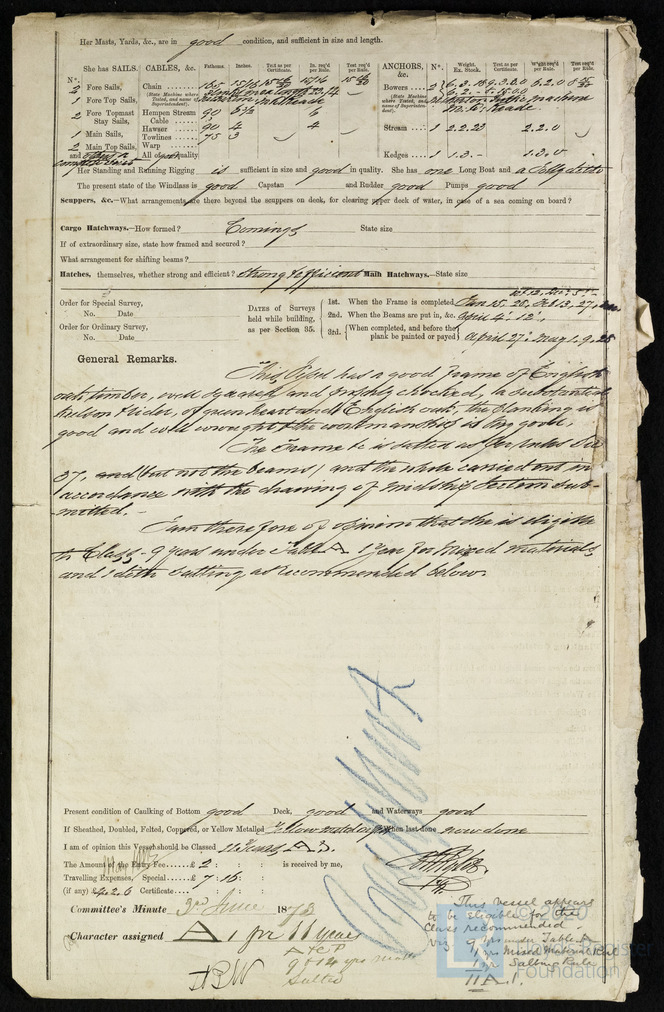 Her Masts, Yards, &c., are in good condition, and sufficient in size and length.
She has SAILS. CABLES, &c. Fathoms. Inches. Test as per Certificate. In. req'd per Rule. Test req'd per Rule. ANCHORS, &c. Nº. Weight. Ex. Stock. Test as per Certificate. W'ght req'd per Rule. Test req'd per Rule.
Nº.
2 Fore Sails, Chain Bowers 2
(State Machine where Tested, and name of Superintendent).
1 Fore Top Sails,
2 Fore Topmast Stay Sails, Hempen Stream Cable 90
Hawser 90 4 4 Stream 1 2.2.23 2.2.0
1 Main Sails, Towlines 75 3
2 Main Top Sails, Warp
and All of good quality Kedges 1 1.3.- 1.3.0
Her Standing and Running Rigging is sufficient in size and good in quality. She has one Long Boat and a
The present state of the Windlass is good Capstan and Rudder good Pumps good
Scuppers, &c.—What arrangements are there beyond the scuppers on deck, for clearing upper deck of water, in case of a sea coming on board?
Cargo Hatchways.—How formed? Comings State size
If of extraordinary size, state how framed and secured?
What arrangement for shifting beams?
Hatches, themselves, whether strong and efficient? Strong & efficient Main Hatchways.—State size
Order for Special Survey, No. Date
Order for Ordinary Survey, No. Date
DATES of Surveys held while building, as per Section 35.
1st. When the Frame is completed Jan 15. 28, Feb 13. 27,
2nd. When the Beams are put in, &c. April 4. 12,
3rd. When completed, and before the plank be painted or payed April 27. May 1. 9. 28
General Remarks.
This Vessel has a good frame of English
oak timber, well squared, and properly chocked, a substantial
Keelson & rider, of green heart and English oak, the planking is
good and well wrought & the workmanship is very good.
The Frame &c is salted as per Index Sec
37, and (but not the beams) and the whole carried out in
accordance with the drawing of midship Section sub-
-mitted.-
I am therefore of opinion that she is eligible
to Class - 9 years under Table A 1 year for Mixed materials
and 1 ditto Salting as recommended below.
Present condition of Caulking of Bottom good Deck, good and Waterways good
If Sheathed, Doubled, Felted, Coppered, or Yellow Metalled When last done now done
I am of opinion this Vessel should be Classed 11 Years A 1.
The Amount of the Entry Fee.....£ 2 : : is received by me,
Travelling Expenses, Special ....£ 7 : 16 :
(if any) £4.2.6 Certificate..... : :
Committee's Minute 3rd June 1873
Character assigned A 1 for 11 years
A & C P
9 + 1 + 1 yrs
Salted
This vessel appears
to be eligible for the
Class recommended.
viz 9 yrs under Table A
1 yr Mixed Material Rule
1 yr Salting Rule
11 A. 1.
© 2020
Lloyd's Register
Foundation